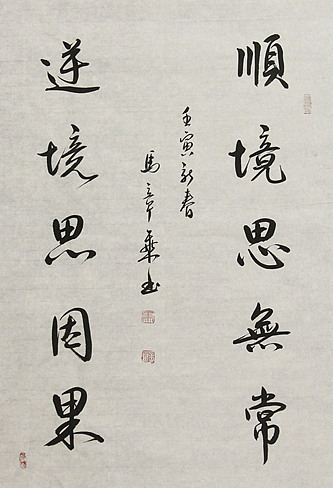 順境思無常
逆境思因果
壬寅新春
馬章乘书